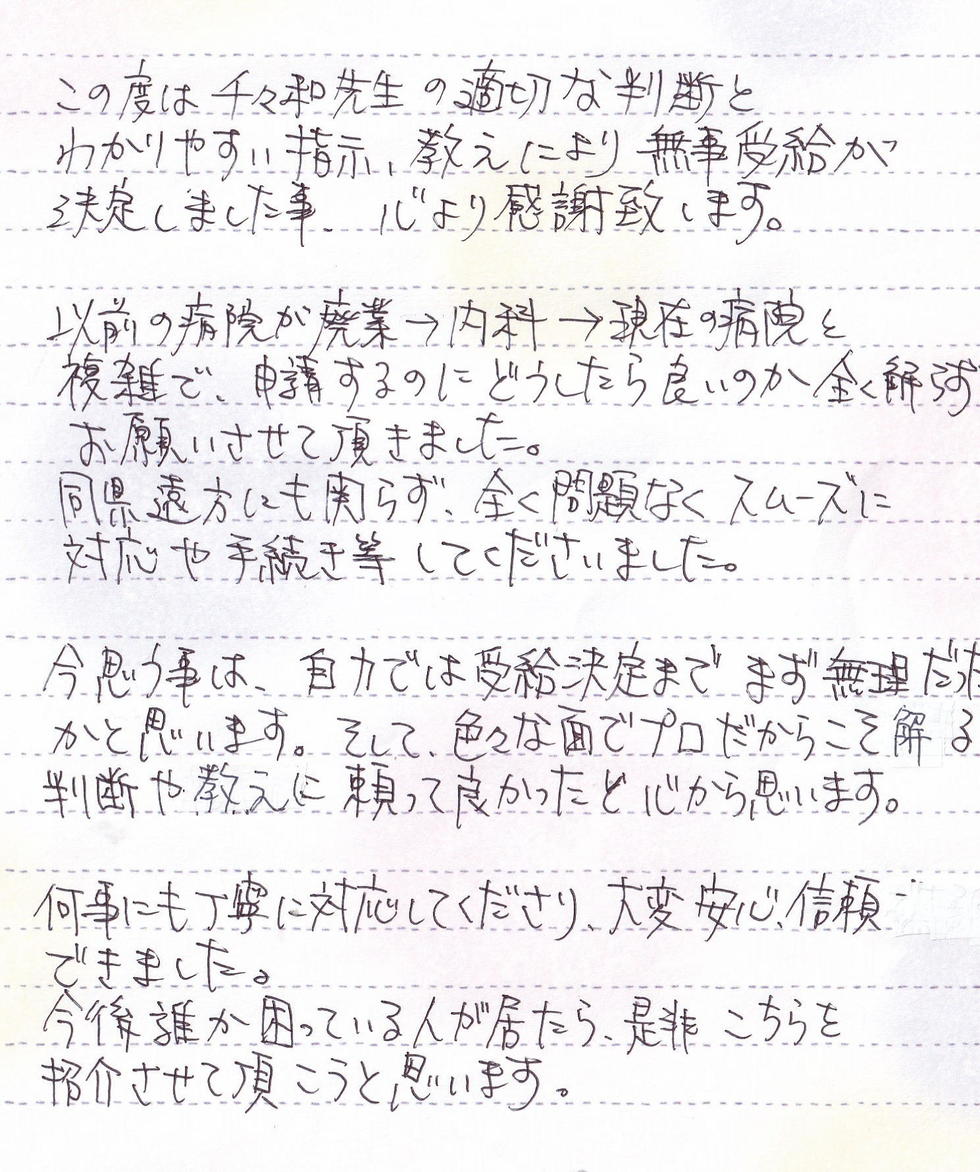 この度は千々和先生の適切な判断と
わかりやすい指示、教えにより無事受給が
決定しました事、心より感謝致します。
以前の病院が廃業→内科→現在の病院と
複雑で、申請するのにどうしたら良いのか全く解らず
お願いさせて頂きました。
同県遠方にも関らず、全く問題なくスムーズに
対応や手続き等してくださいました。
今思う事は、自力では受給決定までまず無理だった
かと思います。そして、色々な面でプロだからこそ解る
判断や教えに頼って良かったと心から思います。
何事にも丁寧に対応してくださり、大変安心、信頼
できました。
今後誰か困っている人が居たら、是非こちらを
紹介させて頂こうと思います。